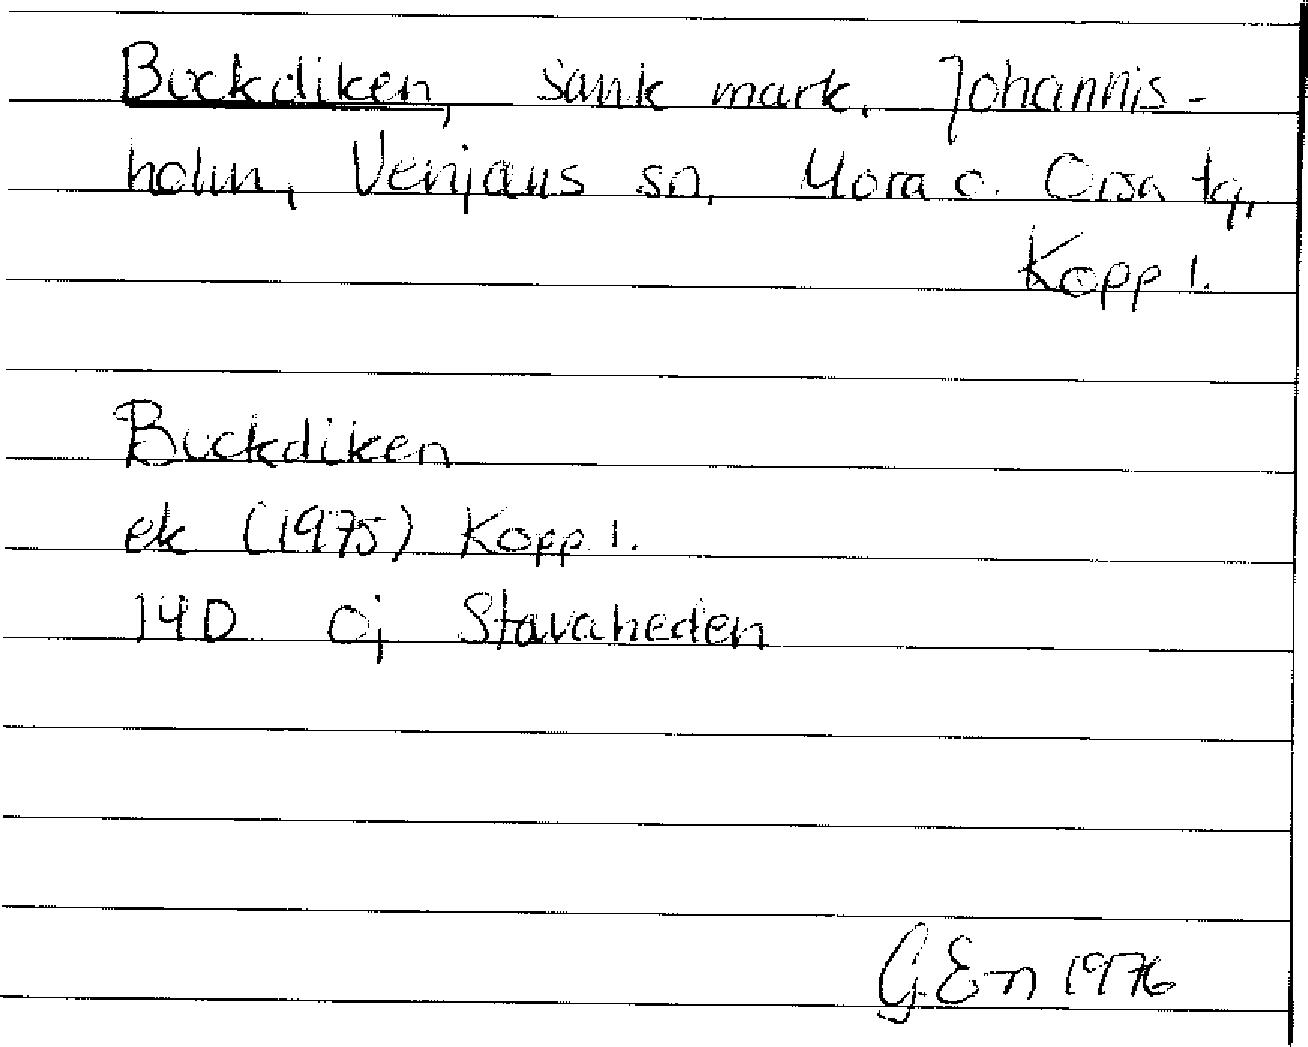 Buckdiken, sank mark. Johannis-
holm, Venjans sn, Mora o. Orsa tg,
Kopp l.
Buckdiken
ek (1975) Kopp l.
14D 0j Stavaheden
G.E-n 1976